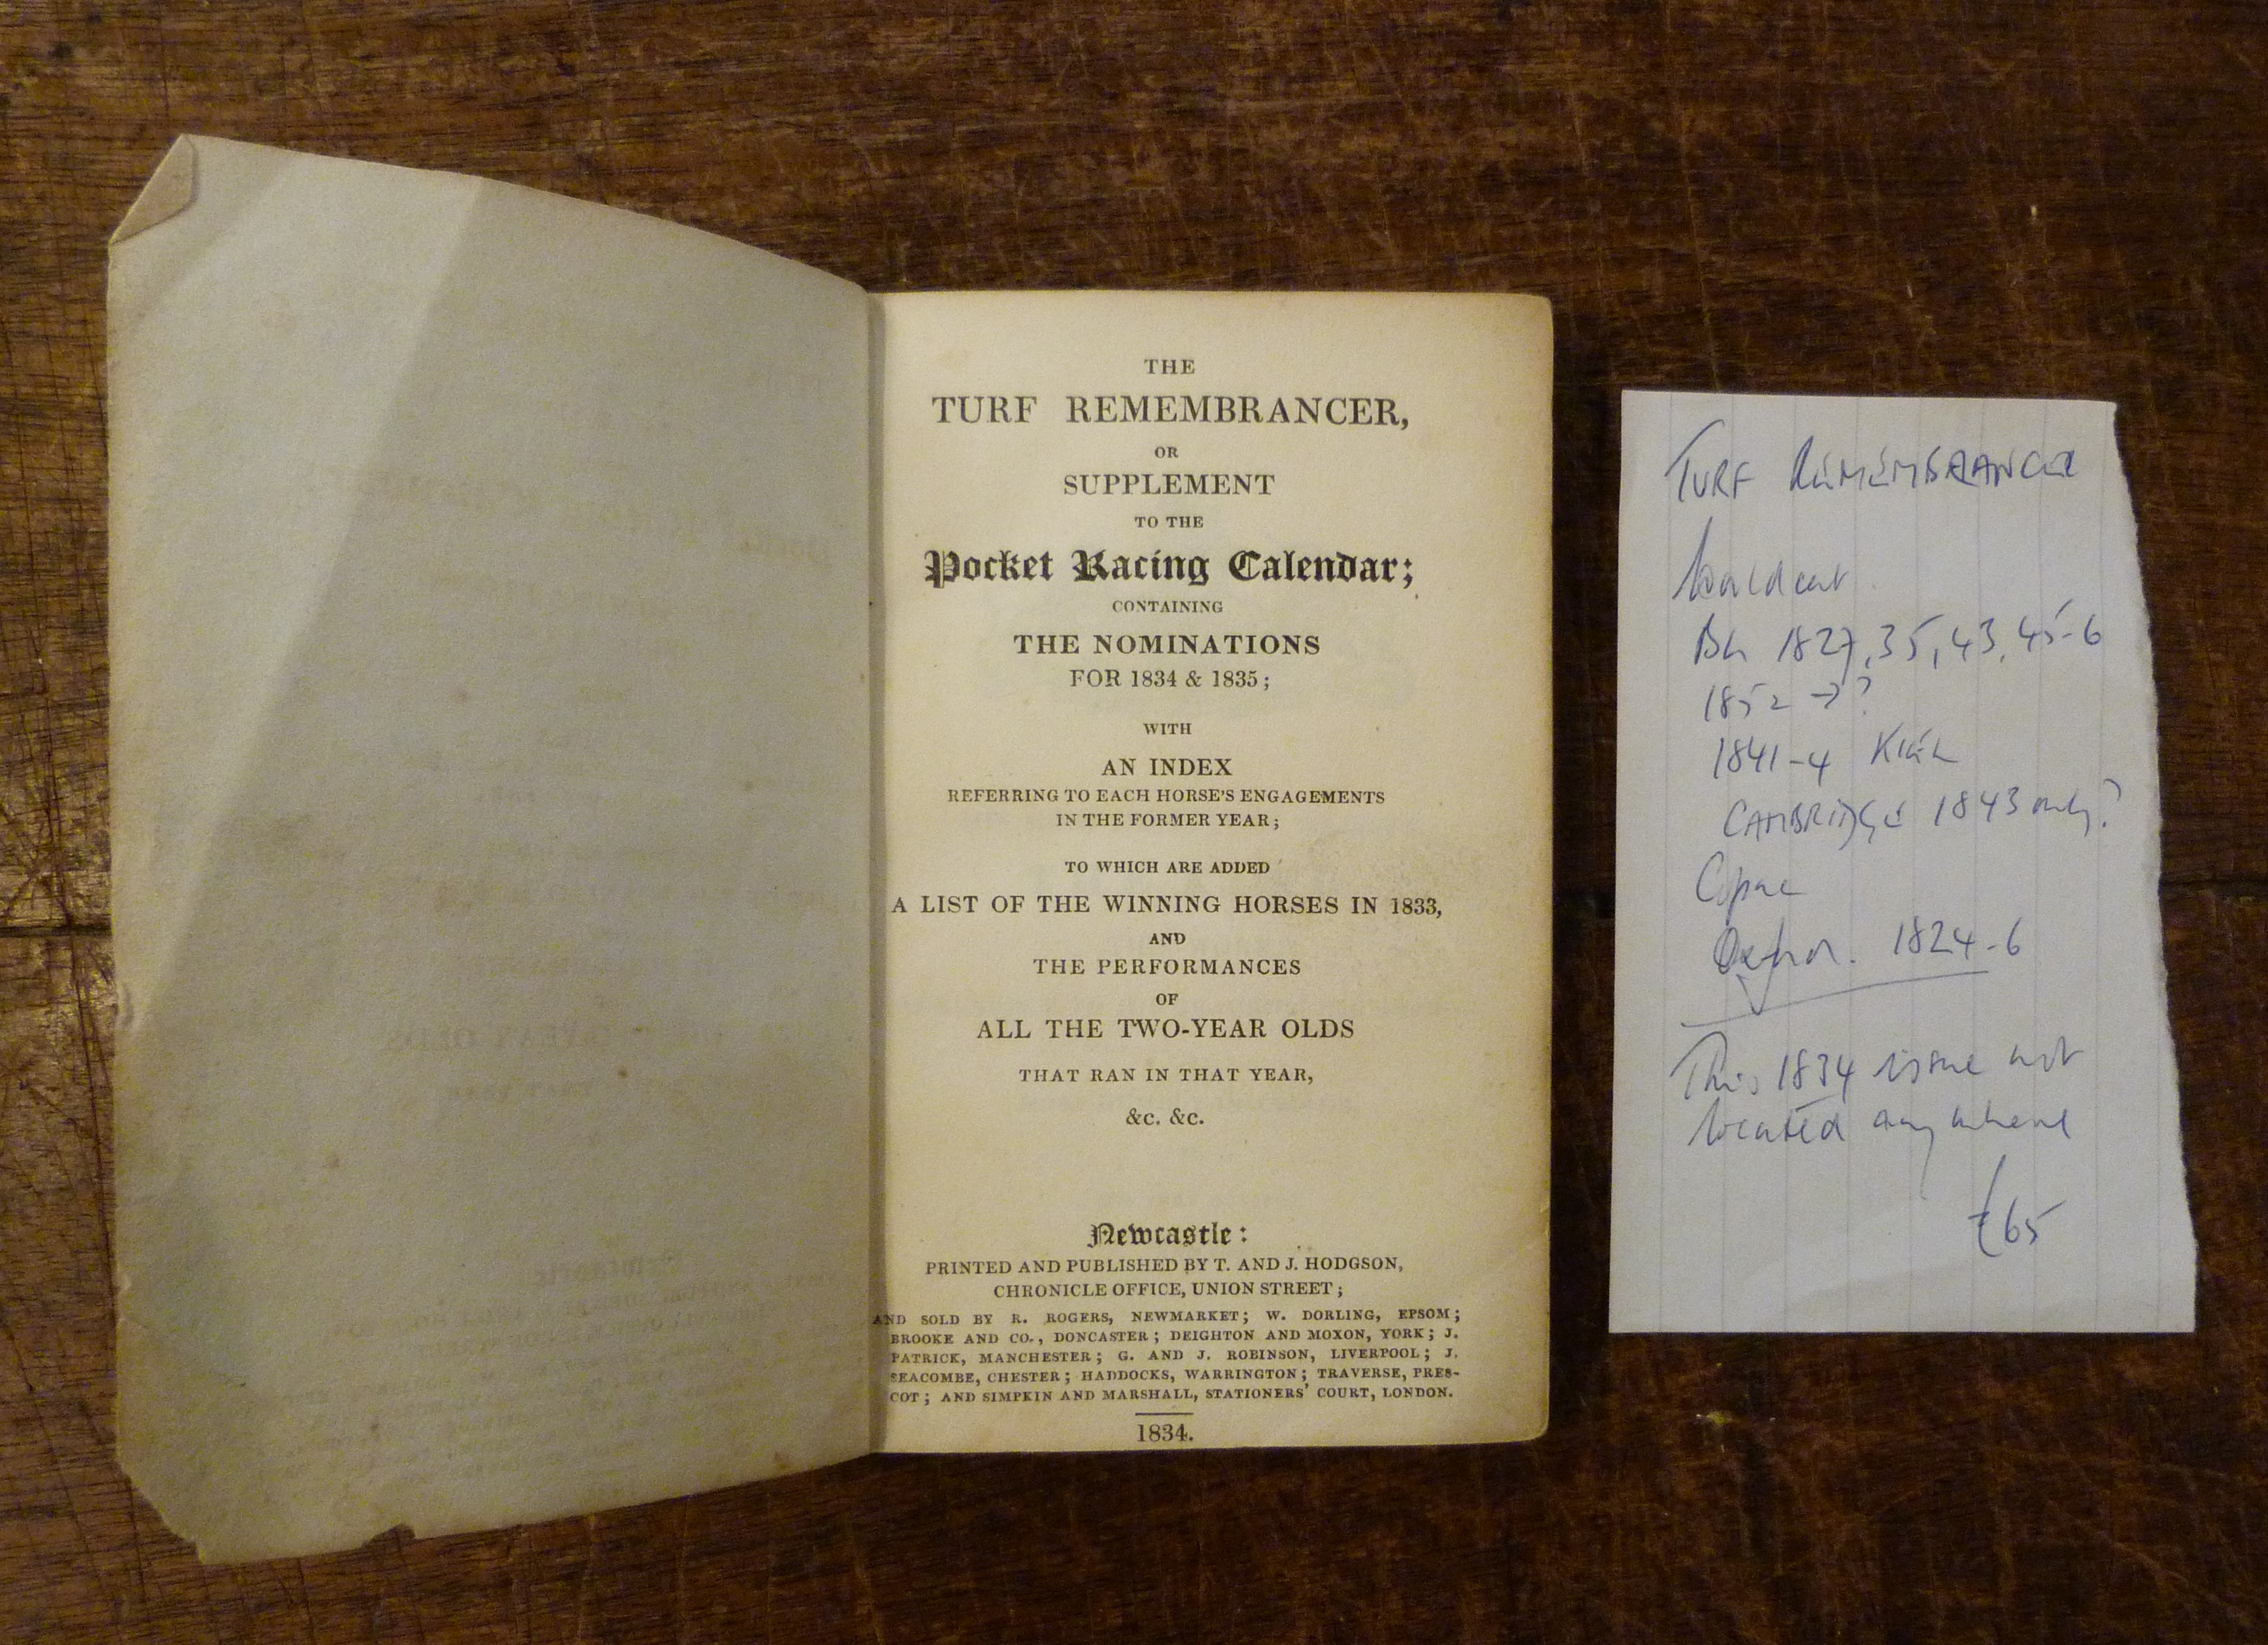 THE
TURF REMEMBRANCER,
OR
SUPPLEMENT
TO THE
Pocket Racing Calendar;
CONTAINING
THE NOMINATIONS
FOR 1834 & 1835;
WITH
AN INDEX
REFERRING TO EACH HORSE'S ENGAGEMENTS
IN THE FORMER YEAR;
TO WHICH ARE ADDED
A LIST OF THE WINNING HORSES IN 1833,
AND
THE PERFORMANCES
OF
ALL THE TWO-YEAR OLDS
THAT RAN IN THAT YEAR,
&c. &c.
Newcastle:
PRINTED AND PUBLISHED BY T. AND J. HODGSON,
CHRONICLE OFFICE, UNION STREET;
AND SOLD BY R. ROGERS, NEWMARKET; W. DORLING, EPSOM;
BROOKE AND CO., DONCASTER; DEIGHTON AND MOXON, YORK; J.
PATRICK, MANCHESTER; G. AND J. ROBINSON, LIVERPOOL; J.
SEACOMBE, CHESTER; HADDOCKS, WARRINGTON; TRAVERSE, PRES-
COT; AND SIMPKIN AND MARSHALL, STATIONERS' COURT, LONDON.
1834.
TURF REMEMBRANCER
Worldcat
BL 1827, 35, 43, 45-6
1852 → ?
1841-4
CAMBRIDGE 1843 only?
Copac
Oxford. 1824-6
This 1834 issue not
located anywhere
£65